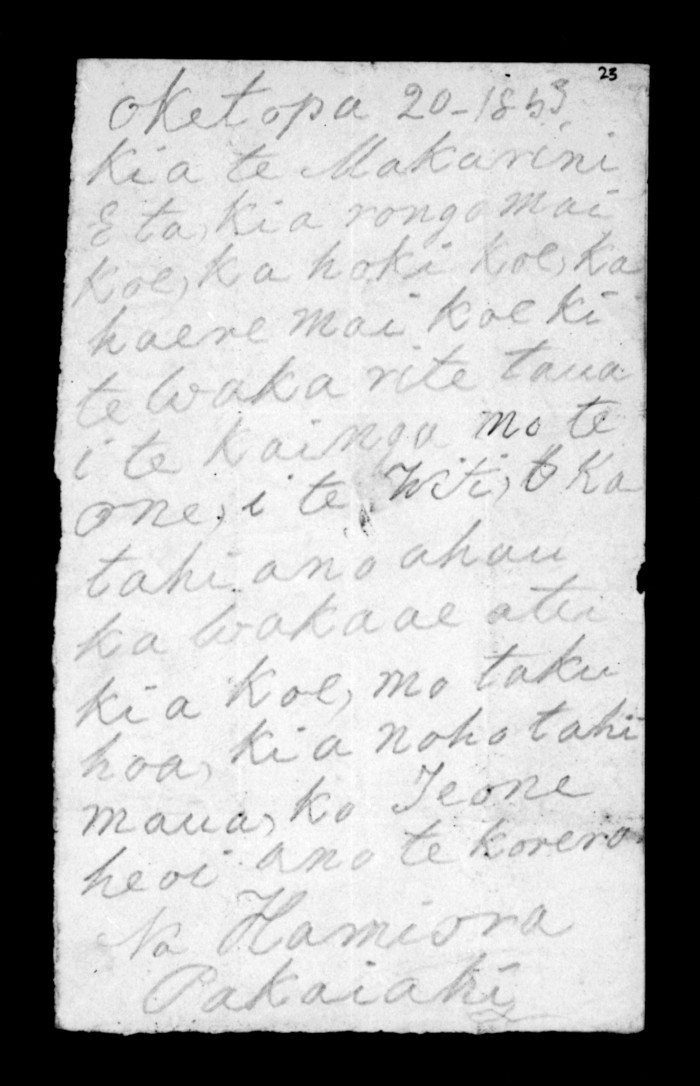 23
Oketopa 20-1853
Kia te Makarini
E ta, kia rongo mai
koe, ka hoki koe, ka
haere mai koe ki
te waka rite taua
i te kainga mo te
one, i te Witi, Ka
tahi ano ahau
ka wakaae atu
kia koe, mo taku
hoa, kia noho tahi
maua, ko Teone
heoi ano te korero
Na Hamiora
Pakaiahi